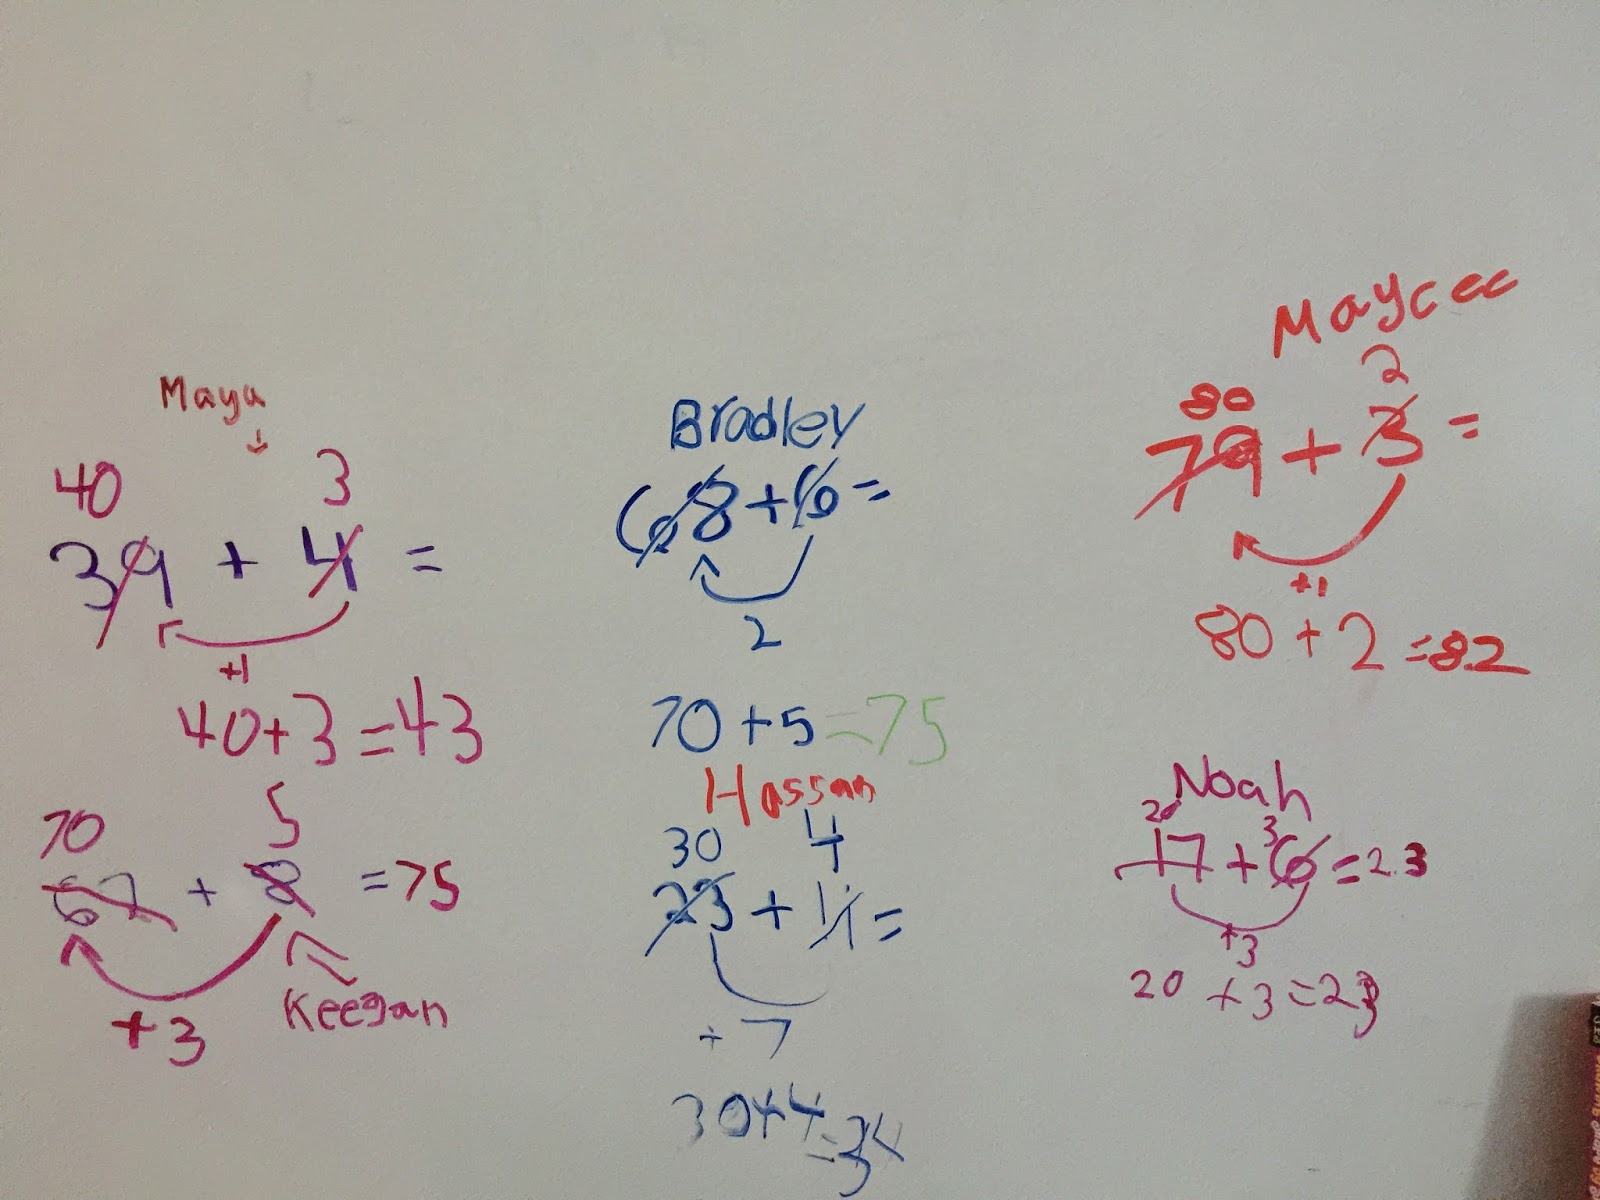 Maya
↓
40 3
39 + 4 =
+1
40+3=43
70 5
67 + 8 =75
+3
Keegan
Bradley
68+6=
2
70+5=75
Hassan
30 4
23 + 11 =
+7
30+4
=34
Maycee
80 2
79 + 3 =
+1
80+2=82
Noah
20 3
17+6=23
+3
20 +3=23